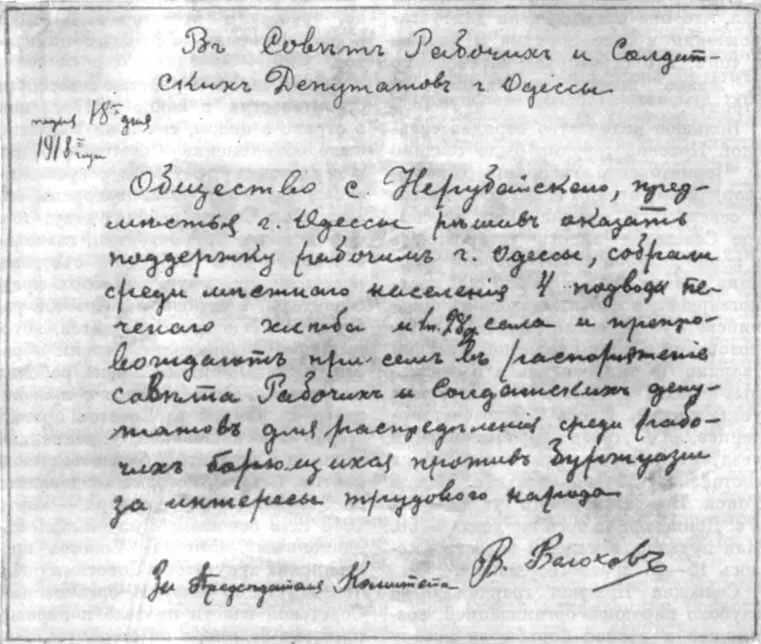 Въ Совѣтъ Рабочихъ и Солдат-
скихъ Депутатовъ г. Одессы
18го дня
1918 года
Общество с. Нерубайского, пред-
мѣстья г. Одессы рѣшивъ оказать
поддержку рабочимъ г. Одессы, собрали
среди мѣстнаго населенія 4 подводы пе-
ченаго хлѣба и сала и препро-
вождаютъ при семъ въ распоряженіе
савѣта Рабочихъ и Солдатскихъ депу-
татовъ для распредѣленія среди рабо-
чихъ борющихся противъ буржуазіи
за интересы трудового народа
За Предсѣдателя Комитета